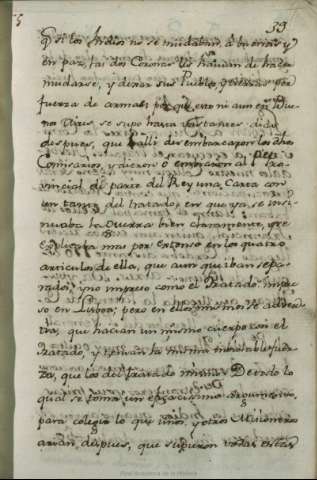 39
Que si los Indios no se mudaban à buenas y
en paz, las dos Coronas los havian de hacer
mudarse, y dexar sus Pueblos, y tierras por
fuerza de armas; porque esto ni aun en Bue-
nos Ayres se supo hasta bastantes dias
despues, que alli desembarcaron los dhos
Comisarios, y dieron ò embiaron al Pro-
vincial de parte del Rey una Carta con
un tanto del tratado, en que ya se insi-
nuaba la Guerra bien claramente, y se
explicaba mas por extenso en los quatro
articulos de ella, que aunque iban sepa-
rados, y no impreso como el tratado impre-
so en Lisboa; pero en ellos mismos se adver-
tia, que hacian un mismo cuerpo con el
tratado, y tenian la misma inviolable fuer-
za, que los del tratado mismo. De todo lo
qual se toma un eficacissimo argumento,
para colegir lo que unos, y otros Misioneros
arian, despues, que supieron todas estas
Real Academia de la Historia